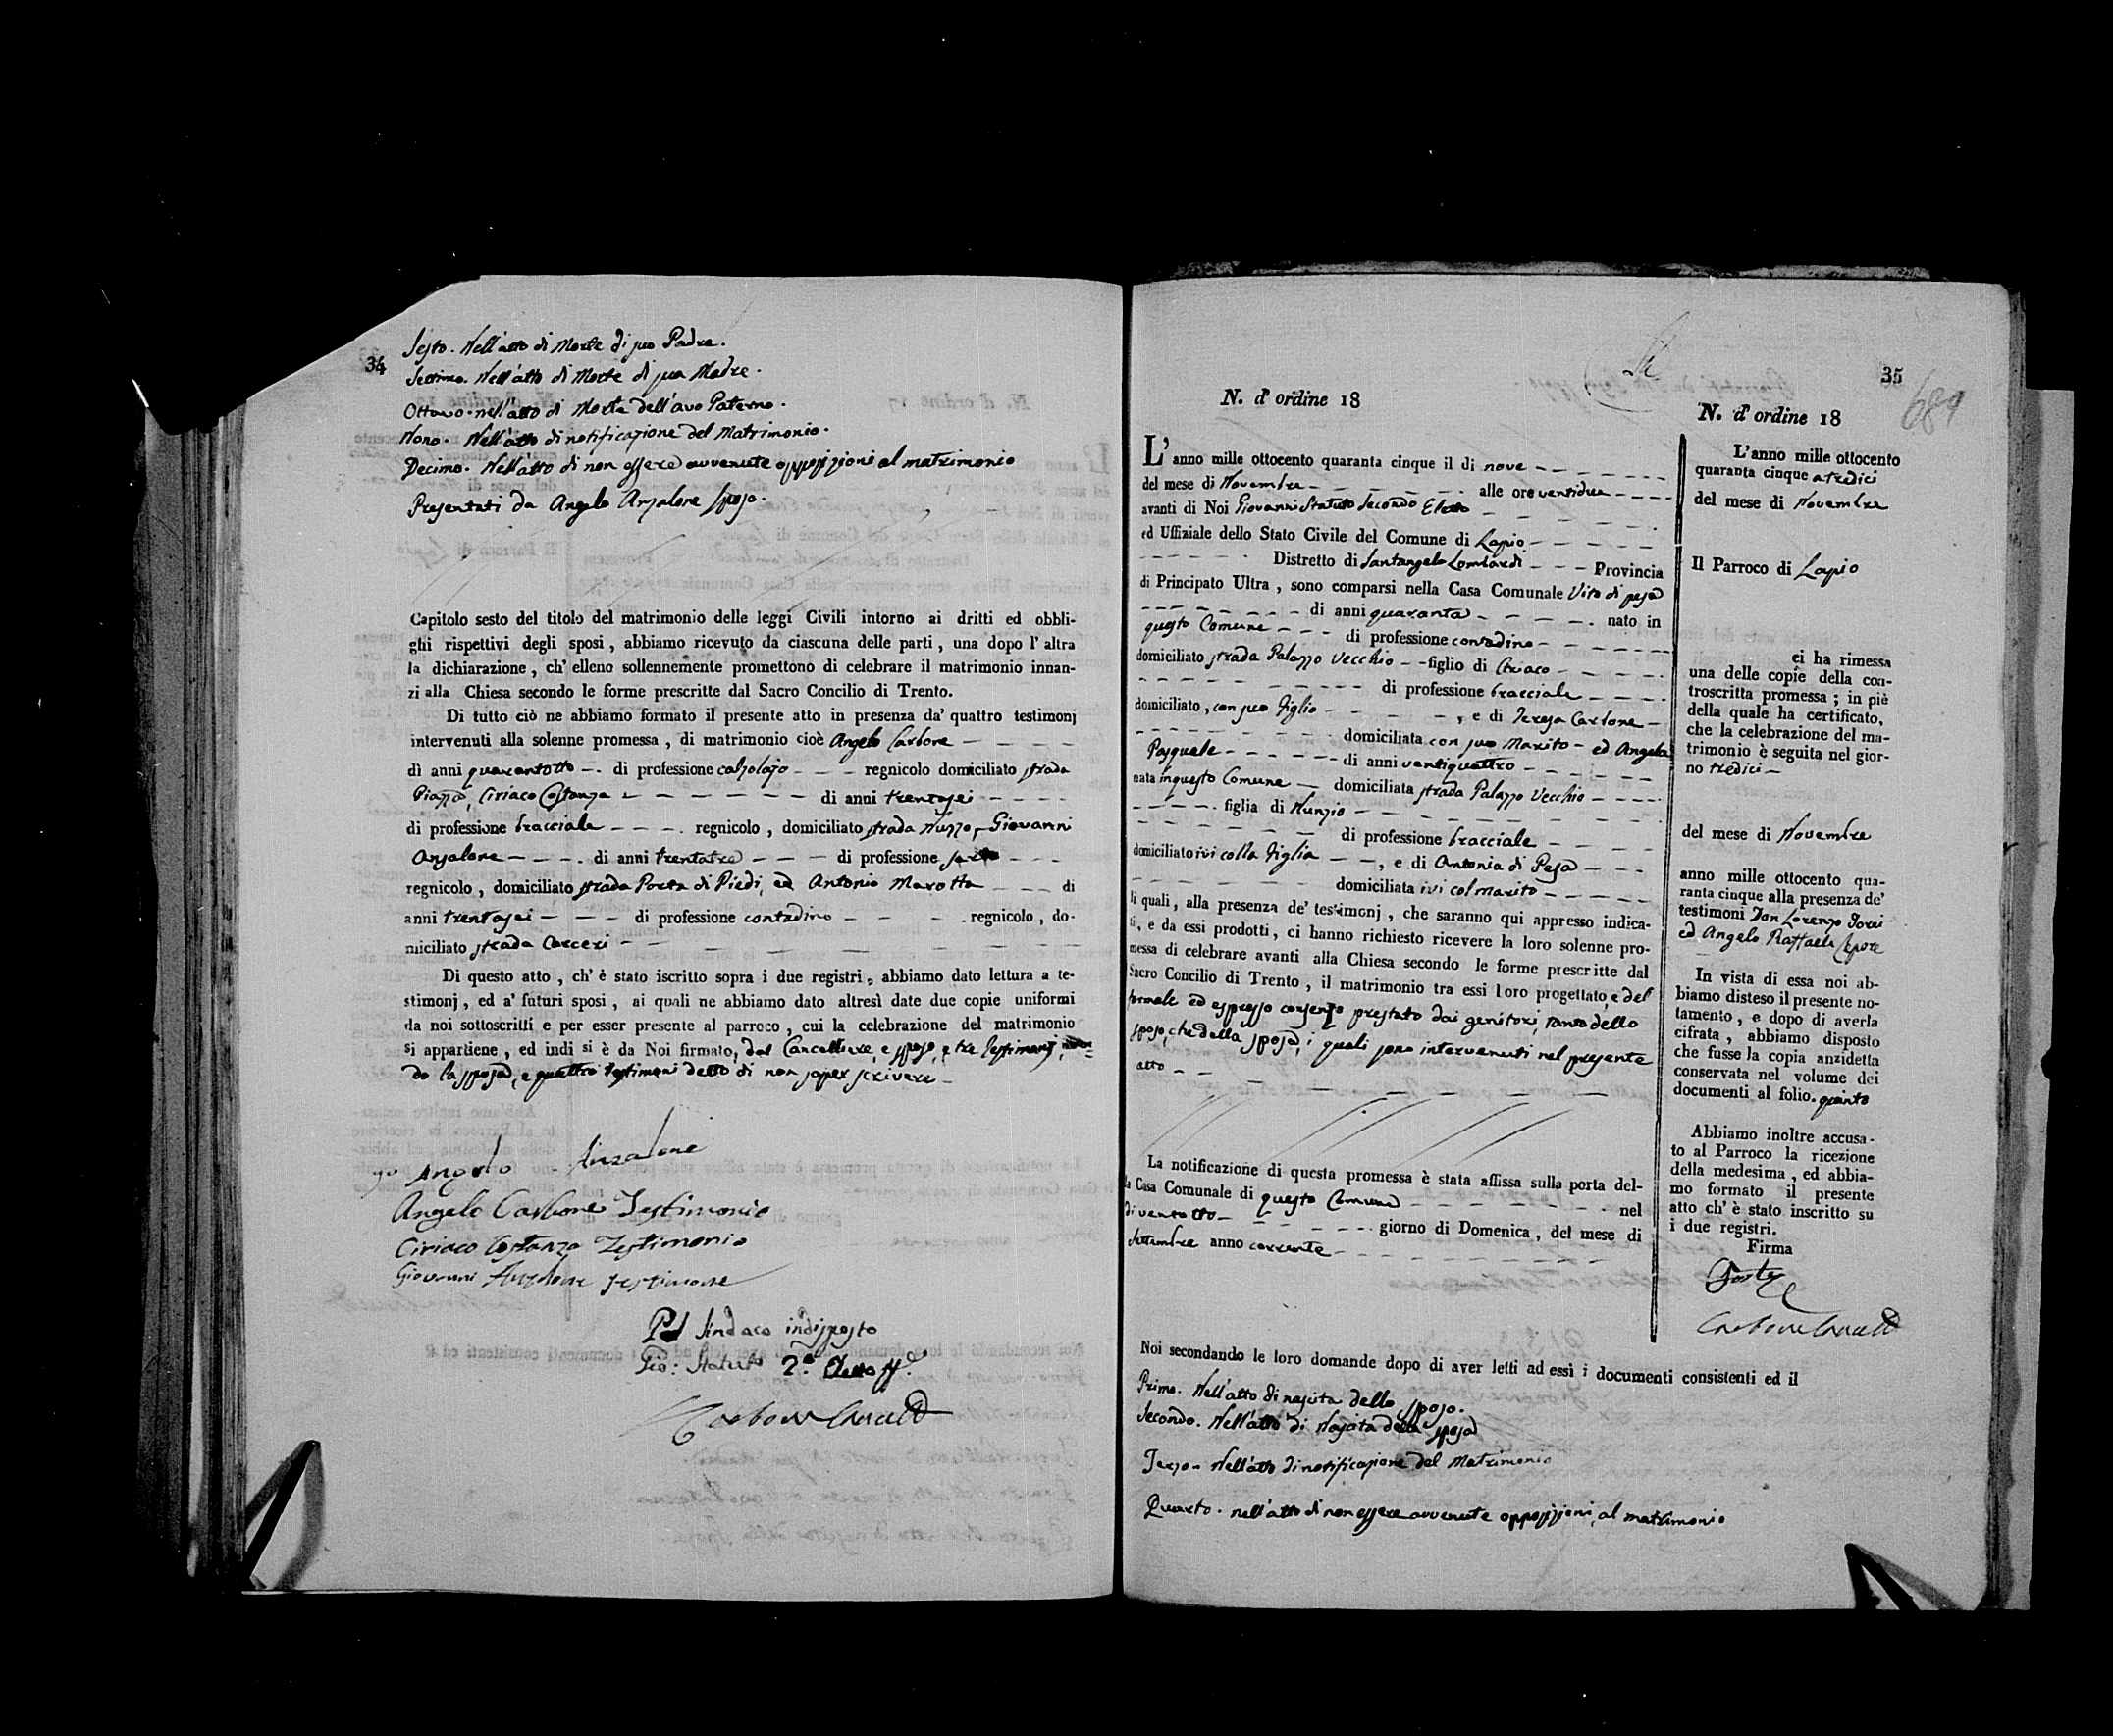 34
Sesto. Nell'atto di Morte di suo Padre.
Settimo. Nell'atto di Morte di sua Madre.
Ottavo. nell'atto di Morte dell'avo Paterno.
Nono. Nell'atto di notificazione del Matrimonio.
Decimo. Nell'atto di non essere avvenute opposizioni al matrimonio
Presentati da Angelo Anzalone sposo.
Capitolo sesto del titolo del matrimonio delle leggi Civili intorno ai dritti ed obbli-
ghi rispettivi degli sposi, abbiamo ricevuto da ciascuna delle parti, una dopo l'altra
la dichiarazione, ch'elleno sollennemente promettono di celebrare il matrimonio innan-
zi alla Chiesa secondo le forme prescritte dal Sacro Concilio di Trento.
Di tutto ciò ne abbiamo formato il presente atto in presenza da' quattro testimonj
intervenuti alla solenne promessa, di matrimonio cioè Angelo Carbone
di anni quarantotto di professione calzolajo regnicolo domiciliato strada
Piazza, Ciriaco Costanza di anni trentasei
di professione bracciale regnicolo, domiciliato strada Nuzzo, Giovanni
Anzalone di anni trentatre di professione sarto
regnicolo, domiciliato strada Porta di Piedi, ed Antonio Marotta di
anni trentasei di professione contadino regnicolo, do-
miciliato strada Carceri
Di questo atto, ch'è stato iscritto sopra i due registri, abbiamo dato lettura a te-
stimonj, ed a' futuri sposi, ai quali ne abbiamo dato altresì date due copie uniformi
da noi sottoscritti e per esser presente al parroco, cui la celebrazione del matrimonio
si appartiene, ed indi si è da Noi firmato, dal Cancelliere, e sposo, e tre testimonj,
do la sposa, e quattro testimoni detto di non saper scrivere
Angelo Anzalone
Angelo Carbone Testimonio
Ciriaco Costanza Testimonio
Giovanni Anzalone testimone
Pel Sindaco indisposto
Gio: Statuto 2.º Eletto ff.
35
689
N. d'ordine 18
L'anno mille ottocento quaranta cinque il di nove
del mese di Novembre alle ore ventidue
avanti di Noi Giovanni Statuto Secondo Eletto
ed Uffiziale dello Stato Civile del Comune di Lapio
Distretto di Santangelo Lombardi Provincia
di Principato Ultra, sono comparsi nella Casa Comunale Vito di pesa
di anni quaranta nato in
questo Comune di professione contadino
domiciliato strada Palazzo Vecchio figlio di Ciriaco
di professione bracciale
domiciliato, con suo figlio, e di Teresa Carbone
domiciliata con suo Marito ed Angela
Pasquale di anni ventiquattro
nata in questo Comune domiciliata strada Palazzo Vecchio
figlia di Nunzio
di professione bracciale
domiciliato ivi colla figlia, e di Antonia di Pesa
domiciliata ivi col marito
li quali, alla presenza de' testimonj, che saranno qui appresso indica-
ti, e da essi prodotti, ci hanno richiesto ricevere la loro solenne pro-
messa di celebrare avanti alla Chiesa secondo le forme prescritte dal
Sacro Concilio di Trento, il matrimonio tra essi loro progettato, e del
formale ed espresso consenso prestato dai genitori, tanto dello
sposo, che della sposa, i quali sono intervenuti nel presente
atto
La notificazione di questa promessa è stata affissa sulla porta del-
la Casa Comunale di questo Comune nel
di ventotto giorno di Domenica, del mese di
Settembre anno corrente
Noi secondando le loro domande dopo di aver letti ad essi i documenti consistenti ed il
Primo. Nell'atto di nascita dello sposo.
Secondo. Nell'atto di Nascita della sposa
Terzo. Nell'atto di notificazione del Matrimonio
Quarto. nell'atto di non essere avvenute opposizioni al matrimonio
N. d'ordine 18
L'anno mille ottocento
quaranta cinque a tredici
del mese di Novembre
Il Parroco di Lapio
ci ha rimessa
una delle copie della con-
troscritta promessa; in piè
della quale ha certificato,
che la celebrazione del ma-
trimonio è seguita nel gior-
no tredici
del mese di Novembre
anno mille ottocento qua-
ranta cinque alla presenza de'
testimoni Don Lorenzo
ed Angelo Raffaele
In vista di essa noi ab-
biamo disteso il presente no-
tamento, e dopo di averla
cifrata, abbiamo disposto
che fusse la copia anzidetta
conservata nel volume dei
documenti al folio. quinto
Abbiamo inoltre accusa-
to al Parroco la ricezione
della medesima, ed abbia-
mo formato il presente
atto ch'è stato inscritto su
i due registri.
Firma